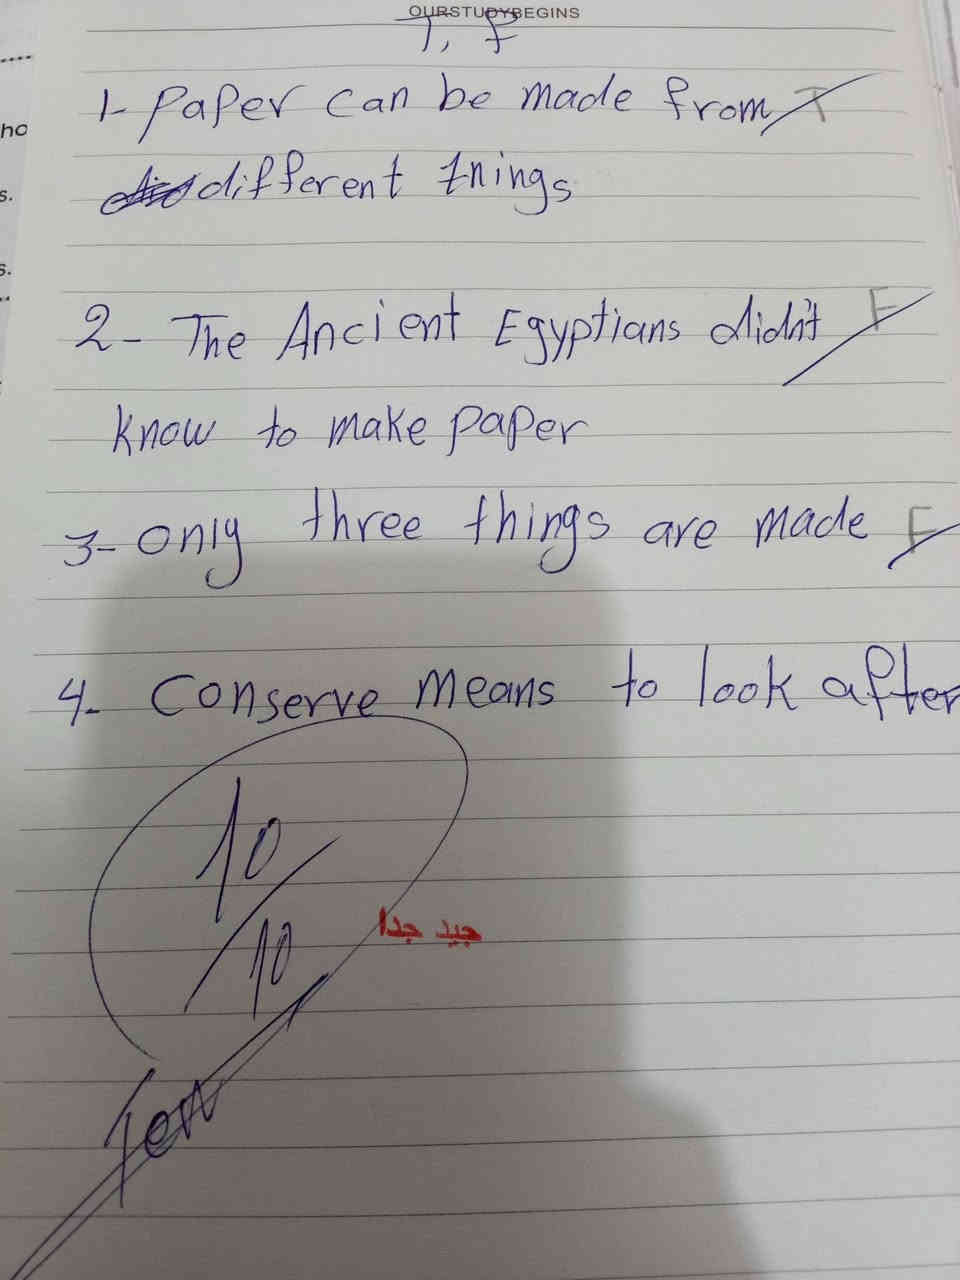 OURSTUDYBEGINS
T, F
1- Paper can be made from T
different things
2- The Ancient Egyptians didn't F
know to make paper
3- only three things are made F
4- Conserve means to look after
10
10
جيد جدا
Ten
ho
s.
s.